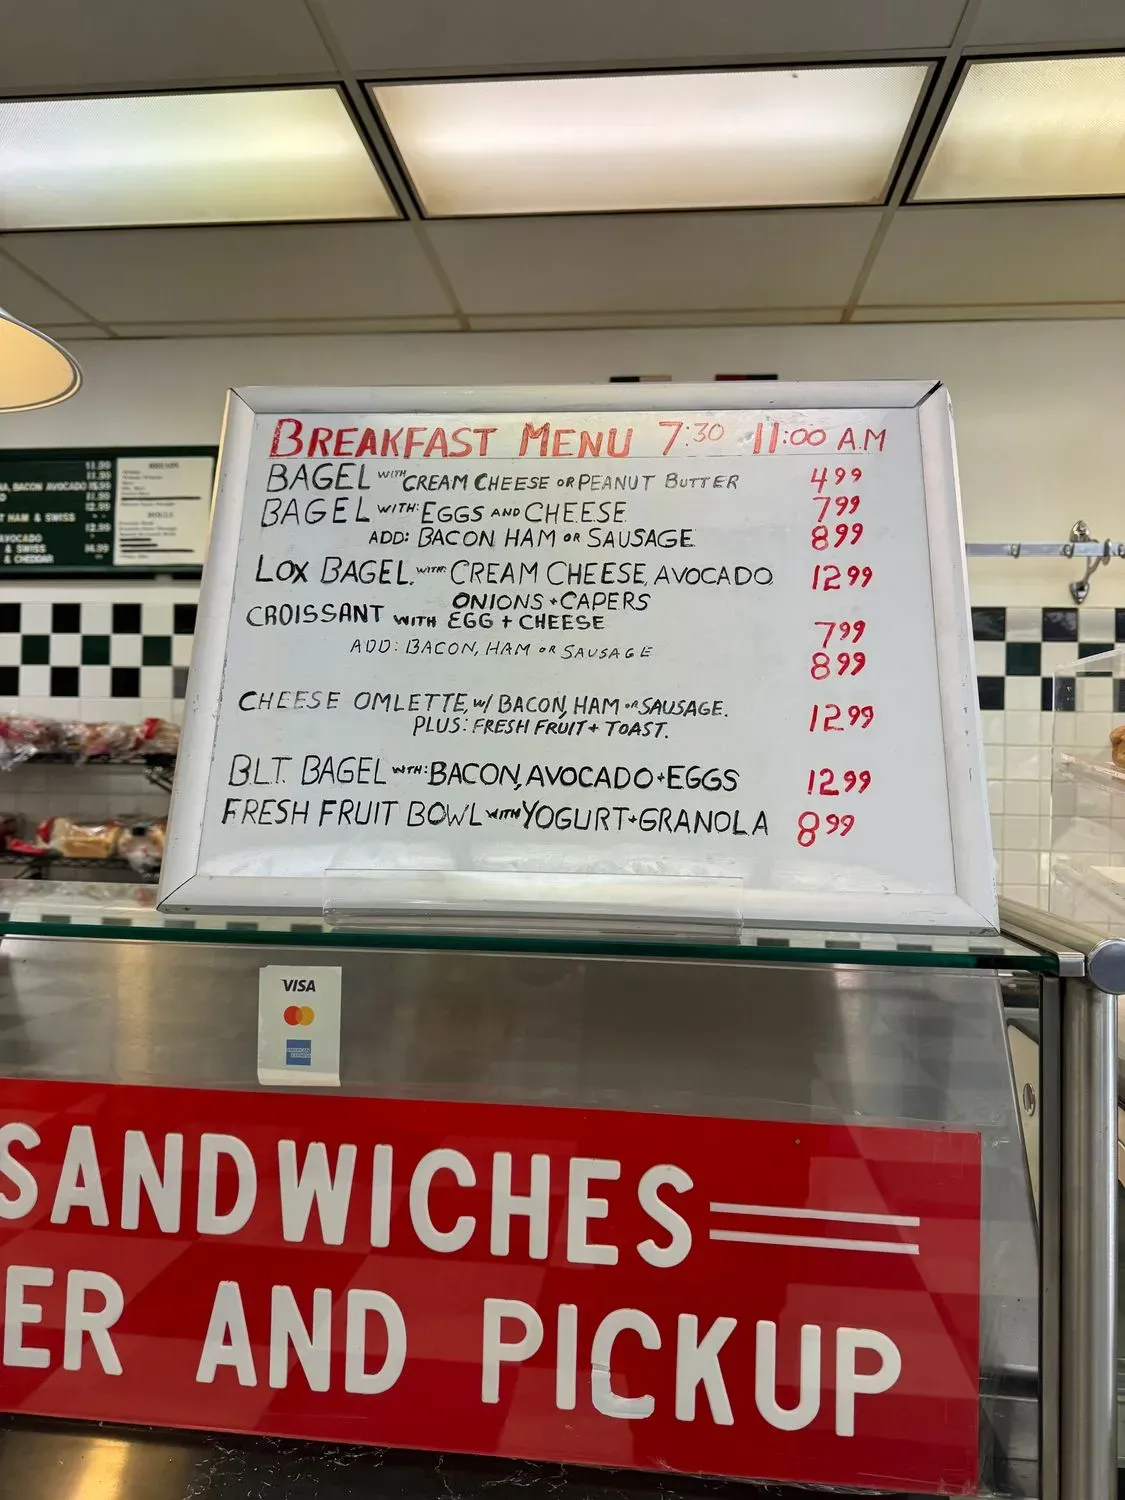 BREAKFAST MENU 7:30 11:00 A.M
BAGEL WITH CREAM CHEESE OR PEANUT BUTTER 4.99
BAGEL WITH: EGGS AND CHEESE 7.99
ADD: BACON HAM OR SAUSAGE 8.99
LOX BAGEL. WITH: CREAM CHEESE, AVOCADO 12.99
ONIONS + CAPERS
CROISSANT WITH EGG + CHEESE 7.99
ADD: BACON, HAM OR SAUSAGE 8.99
CHEESE OMLETTE, W/ BACON, HAM OR SAUSAGE. 12.99
PLUS: FRESH FRUIT + TOAST.
B.L.T. BAGEL WITH: BACON, AVOCADO + EGGS 12.99
FRESH FRUIT BOWL WITH YOGURT + GRANOLA 8.99
BACON AVOCADO
HAM & SWISS
AVOCADO
& SWISS
& CHEDDAR
VISA
AMERICAN EXPRESS
SANDWICHES
ER AND PICKUP